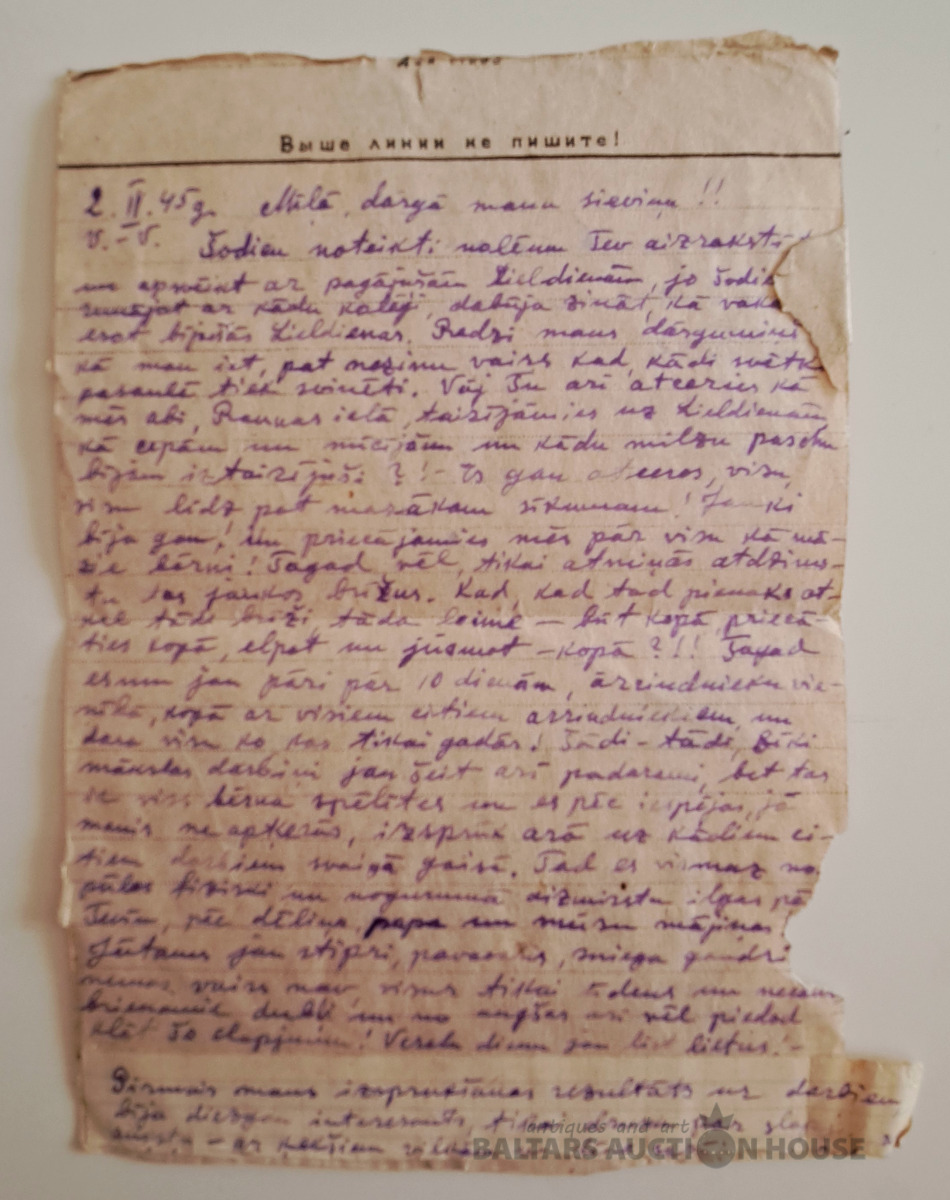 Выше линии не пишите!
2.II.45g. Mīlā, dārgā manu sieviņ!!
V.-V. Šodien noteikti nolēmu Tev aizrakstīt
un apsveikt ar pagājušām Lieldienām, jo šodien
runājot ar kādu kolēģi, dabūja zināt, kā vaka
esot bijušas Lieldienas. Redzi mans dārgumiņ
kā man iet, pat nezinu vairs kad, kādi svētki
pasaulē tiek svinēti. Vaj Tu arī atceries kā
mēs abi, ielā, taisījāmies uz Lieldienām
kā cepām un mīcījām un kādu milzu paschu
bijām iztaisījuši ?!- Es gan atceros, visu,
visu līdz pat mazākam sīkumam! Jauki
bija gan! un priecājamies mēs pār visu kā ma-
zie bērni! Tagad vēl, tikai atmiņās atdzīvo-
tu tos jaukos brīžus. Kad, kad tad pienāks at-
kal tādi brīži tāda laime – būt kopā, priecā-
ties kopā, elpot un jūsmot – kopā ?!! Tagad
esmu jau pāri par 10 dienām, ārzindnieku vie-
nībā, kopā ar visiem citiem arzindniekiem, un
daru visu ko, kas tikai gadās! Šādi-tādi, sīki
mākslas darbiņi jau šeit arī padarami, bet tas
ir viss bērna spēlītes un es pēc iespējas, ja
manis ne aptveras, izsprūk arā uz kādiem ci-
tiem darbiem svaigā gaisā. Tad es vismaz no-
pūlos fiziski un nogurumā aizmirstu ilgas pē
Tevis, pēc dēliņa, papa un mūsu mājiņas!
Jūtams jau stipri, pavasaris, sniega gandrī
nemaz vairs nav, visur tikai ūdens un
brienamie dubļi un no augšas arī vēl piedod
klāt šo slapjumu! Veselu dienu jau līst lietus!-
Pirmais mans izsprukšanas rezultāts uz darbiem
bija diezgan interesants,
- ar
antiques and art
BALTARS AUCTION HOUSE